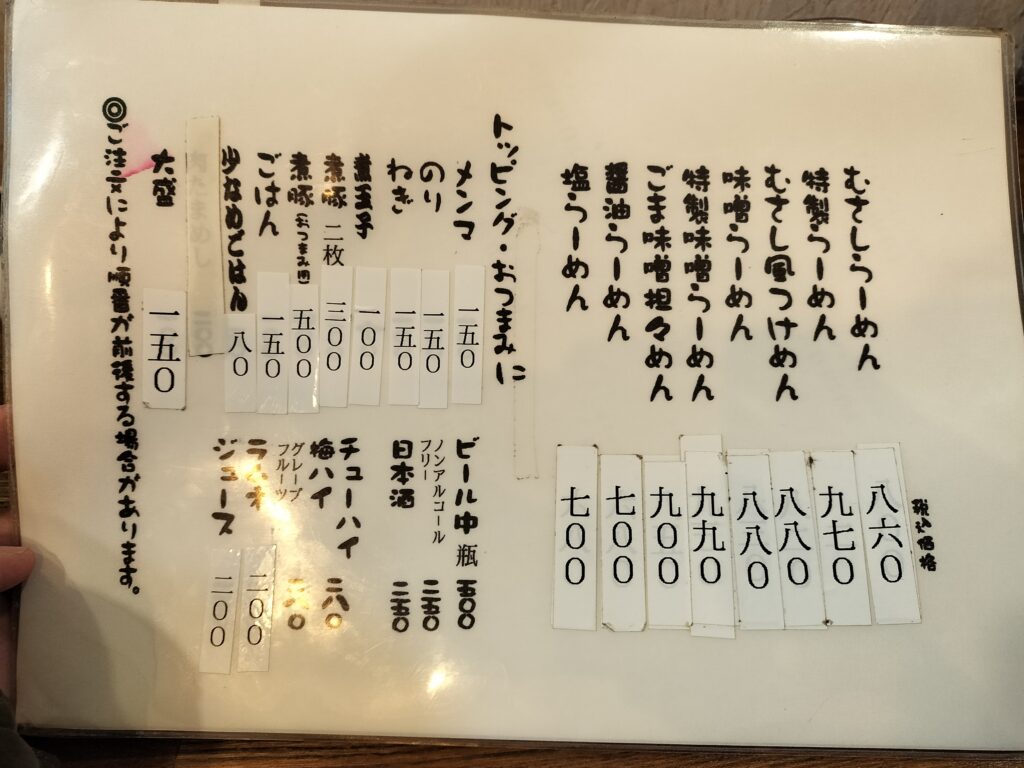 税込価格
むさしらーめん 八六〇
特製らーめん 九七〇
むさし風つけめん 八八〇
味噌らーめん 八八〇
特製味噌らーめん 九九〇
ごま味噌担々めん 九〇〇
醤油らーめん 七〇〇
塩らーめん 七〇〇
トッピング・おつまみに
メンマ 一五〇
のり 一五〇
ねぎ 一五〇
煮玉子 一〇〇
煮豚 二枚 三〇〇
煮豚(おつまみ用) 五〇〇
ごはん 一五〇
少なめごはん 八〇
大盛 一五〇
ビール中瓶 五〇〇
ノンアルコール
フリー 二五〇
日本酒 二五〇
チューハイ
梅ハイ 二八〇
グレープ
フルーツ
ラムネ 二〇〇
ジュース 二〇〇
◎ご注文により順番が前後する場合があります。